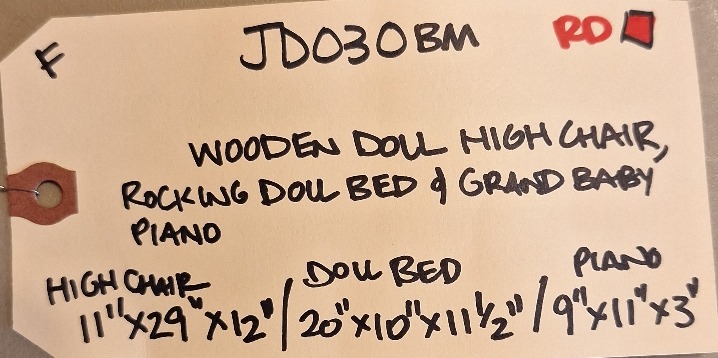 F
JD030BM
RD
WOODEN DOLL HIGH CHAIR,
ROCKING DOLL BED & GRAND BABY
PIANO
HIGH CHAIR DOLL BED PIANO
11"x29"x12" / 20"x10"x11 1/2" / 9"x11"x3"